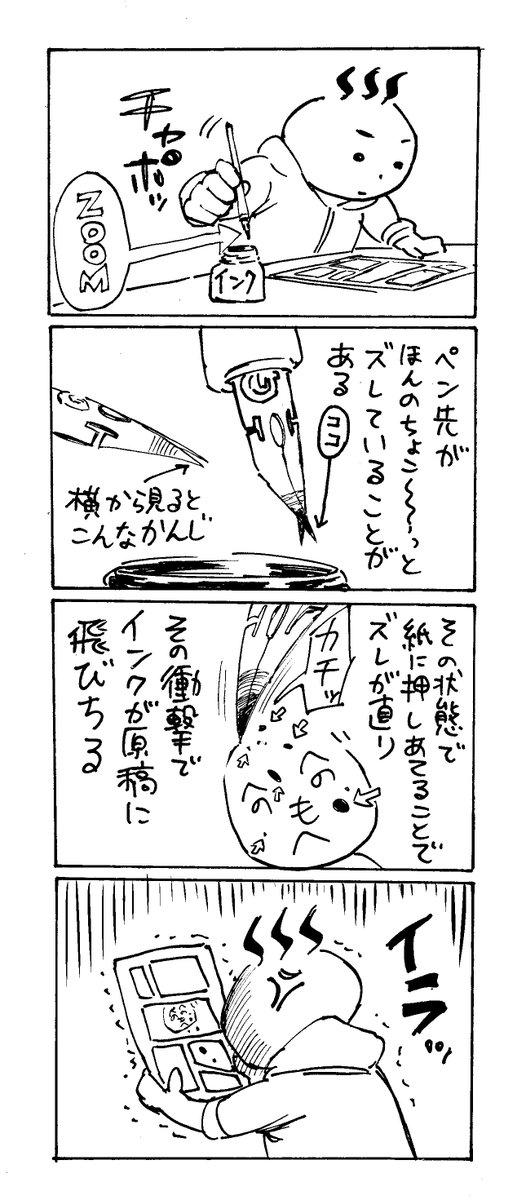 チャポッ
ZOOM
インク
ペン先が
ほんのちょこ〜〜〜っと
ズレていることが
ある
ココ
横から見ると
こんなかんじ
その状態で
紙に押しあてることで
ズレが直り
カチッ
その衝撃で
インクが原稿に
飛びちる
へのへの
も
へ
イラッ